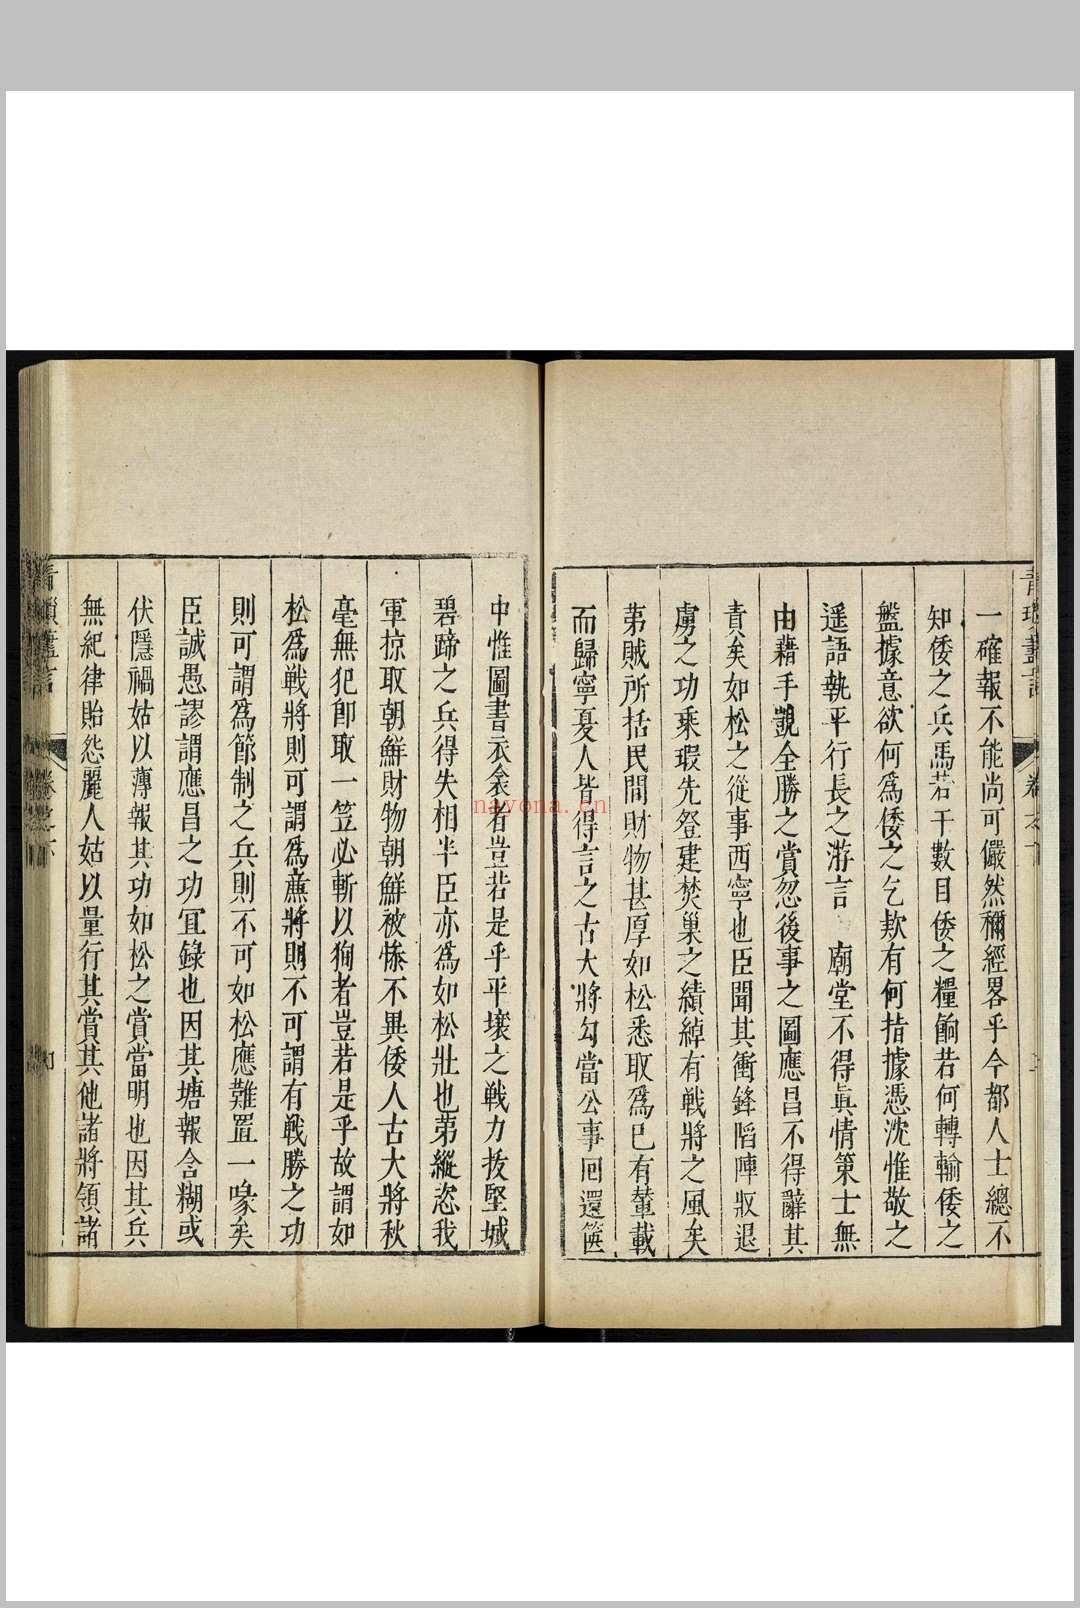 一確報不能尚可儼然稱經畧乎今都人士總不
知倭之兵馬若干數目倭之糧餉若何轉輸倭之
盤據意欲何爲倭之乞欵有何指據憑沈惟敬之
遥語執平行長之游言 廟堂不得眞情策士無
由藉手覬全勝之賞忽後事之圖應昌不得辭其
責矣如松之從事西寧也臣聞其衝鋒陷陣馭退
虜之功乘瑕先登建焚巢之績綽有戰將之風矣
第賊所括民間財物甚厚如松悉取爲巳有輦載
而歸寧夏人皆得言之古大將勾當公事囘還篋
中惟圖書衣衾者豈若是乎平壤之戰力拔堅城
碧蹄之兵得失相半臣亦爲如松壯也第縱恣我
軍掠取朝鮮財物朝鮮被慘不異倭人古大將秋
毫無犯卽取一笠必斬以狥者豈若是乎故謂如
松爲戰將則可謂爲廉將則不可謂有戰勝之功
則可謂爲節制之兵則不可如松應難置一喙矣
臣誠愚謬謂應昌之功宜錄也因其塘報含糊或
伏隱禍姑以薄報其功如松之賞當明也因其兵
無紀律貽怨麗人姑以量行其賞其他諸將領諸
nayona.cn